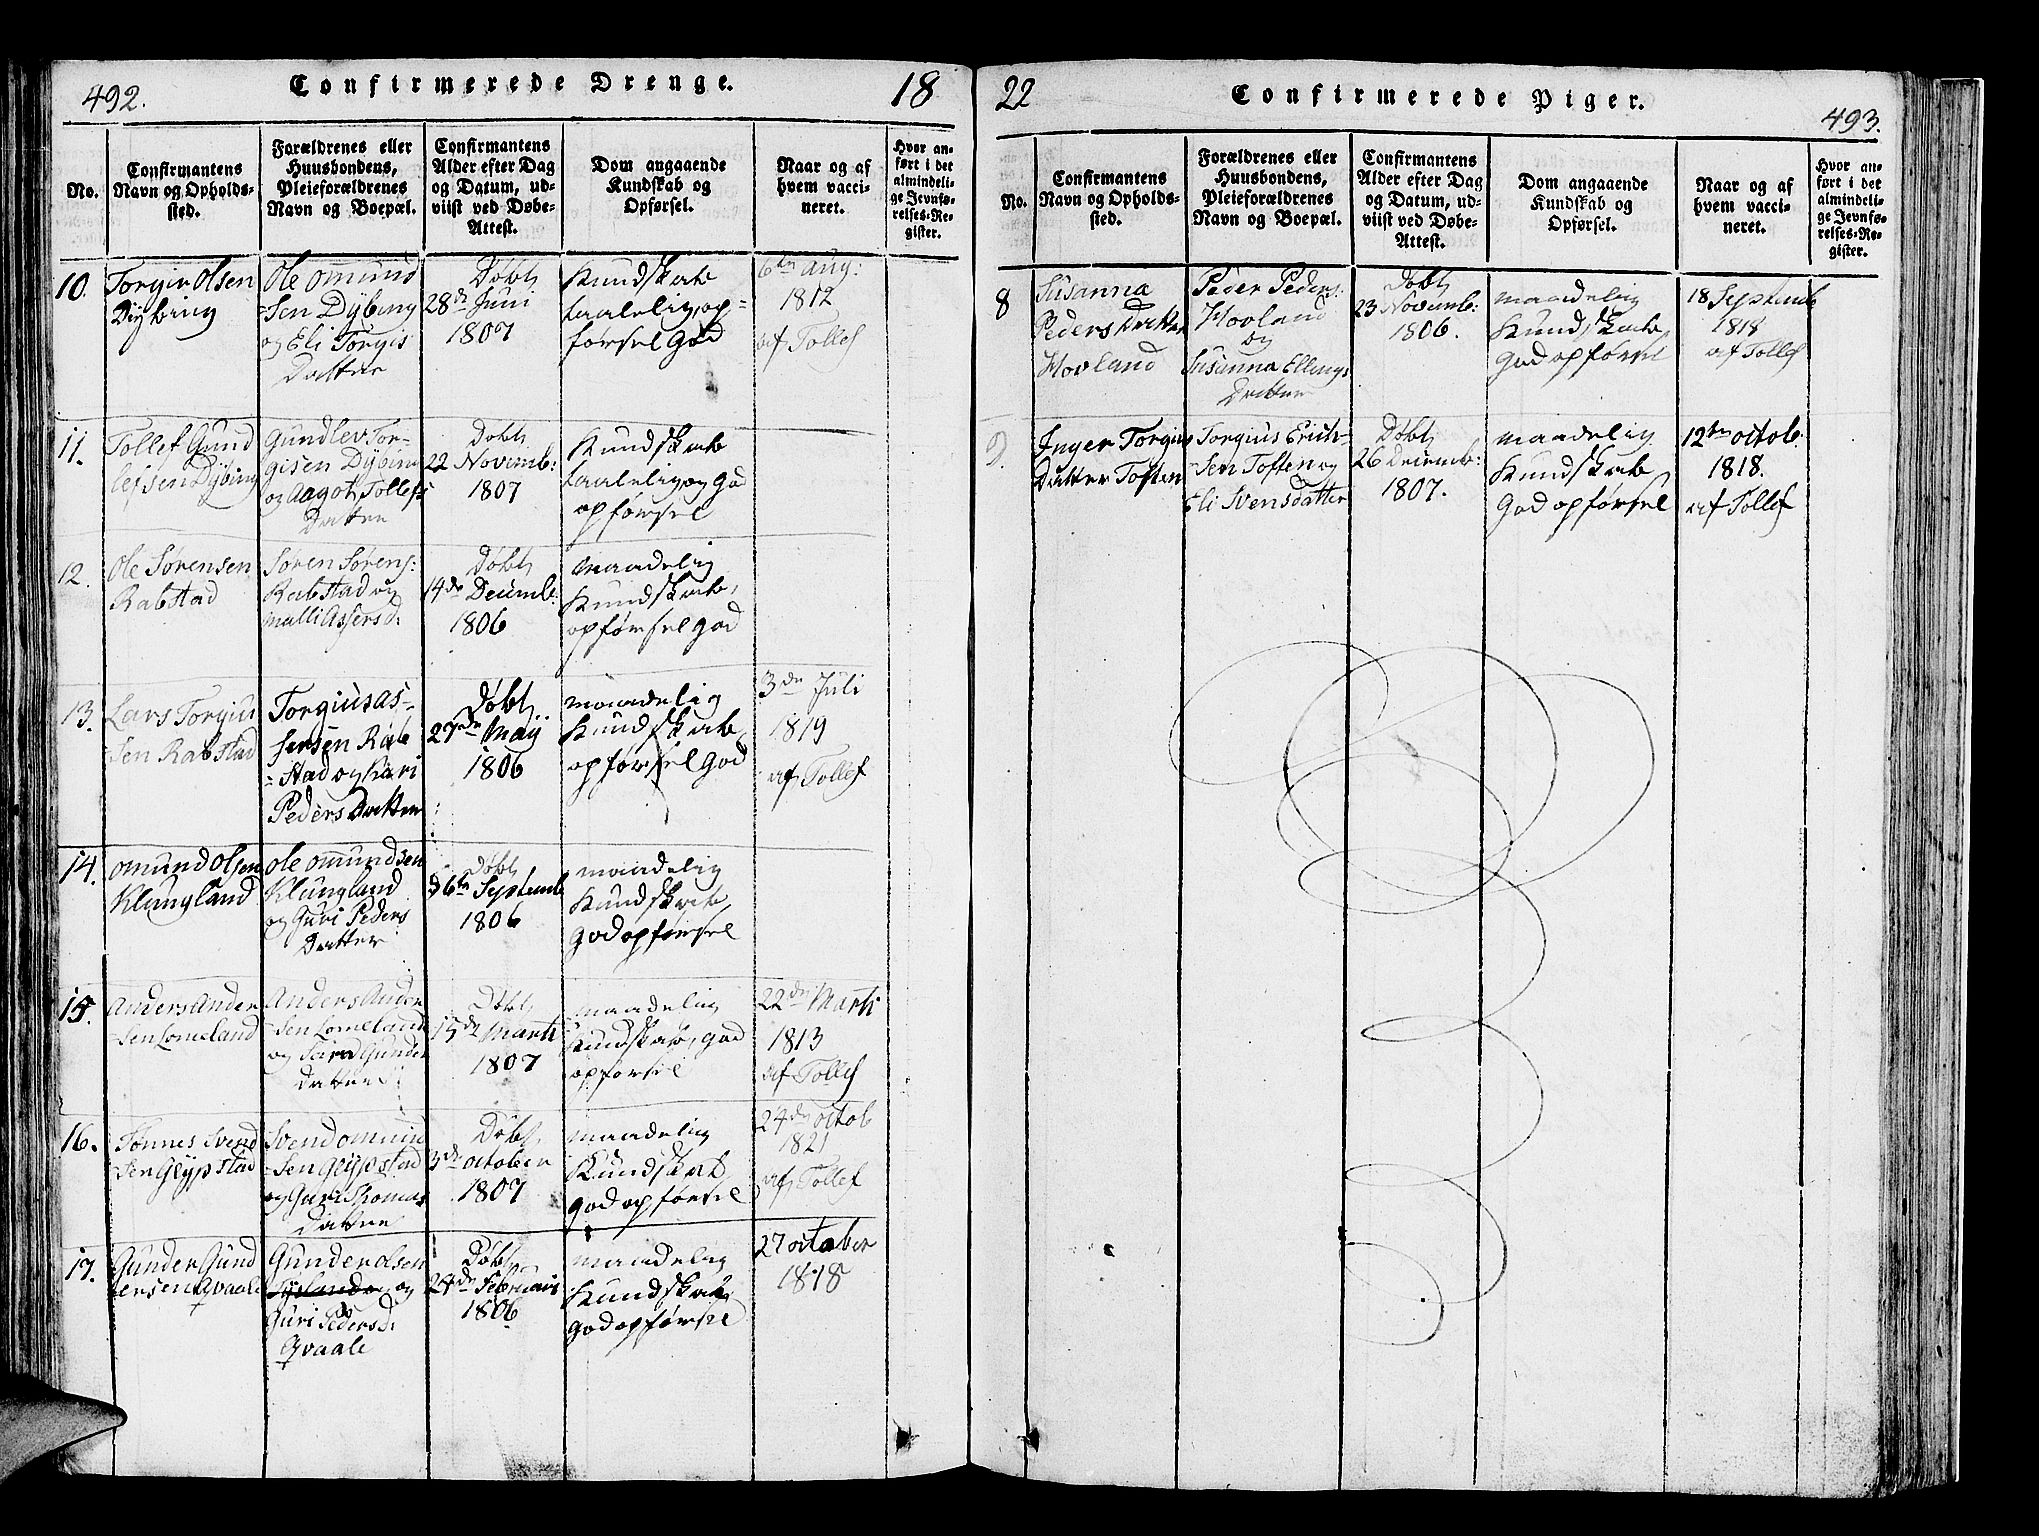 492.
Confirmerede Drenge.
18
No.
Confirmantens
Navn og Opholds-
sted.
Forældrenes eller
Huusbondens,
Pleieforældrenes
Navn og Boepæl.
Confirmantens
Alder efter Dag
og Datum, ud-
viist ved Døbe-
Attest.
Dom angaaende
Kundskab og
Opførsel.
Naar og af
hvem vacci-
neret.
Hvor an-
ført i det
almindeli-
ge Jevnfø-
relses-Re-
gister.
10.
Torgir Olsen
Dÿbing
Ole Omund
-sen Dÿbing
og Eli Torgis
Datter
Døbt
28de Juni
1807
Kundskab
taalelig, op-
førsel god
6te Aug:
1812
af Tollef
11.
Tollef Gund
lefsen Dÿbing
Gundlev Tor-
gisen Dÿbing
og Aagot Tollefs
Datter
Døbt
22 Novemb:
1807
Kundskab
taalelig og god
opførsel
12.
Ole Sørensen
Rabstad
Søren Sørens:
Rabstad og
Malli Assersd:
Døbt
14de Decemb:
1806
maadelig
Kundskab,
opførsel god
13.
Lars Torgius
sen Rabstad
Torgius As-
sersen Rab
-stad og Kari
Peders Datter
Døbt
27de Maÿ
1806
maadelig
Kundskab,
opførsel god
3de Juli
1819
af Tollef
14.
Omund Olsen
Klungland
Ole Omundsen
Klungland
og Guri Peders
Datter
Døbt
6te Septemb
1806
maadelig
Kundskab,
god opførsel
15.
Anders Ander
-sen Lomeland
Anders Ander
-sen Lomeland
og Gunder
datter
Døbt
15de Marti
1807
maadelig
Kundskab, god
opførsel
22de Marti
1813
af Tollef
16.
Tønnes Svend
-sen Glÿpstad
Svend Omund
-sen Glÿpstad
og Guri Thomas
Datter
Døbt
3de October
1807
maadelig
Kundskab
god opførsel
24de Octob
1821
af Tollef
17.
Gunder Gund
ersen Qvaale
Gunder Olsen
og
Guri Pedersd:
Qvaale
Døbt
24de Februari
1806
maadelig
Kundskab
god opførsel
27 October
1818
22
Confirmerede Piger.
493.
No.
Confirmantens
Navn og Opholds-
sted.
Forældrenes eller
Huusbondens,
Pleieforældrenes
Navn og Boepæl.
Confirmantens
Alder efter Dag
og Datum, ud-
viist ved Døbe-
Attest.
Dom angaaende
Kundskab og
Opførsel.
Naar og af
hvem vacci-
neret.
Hvor an-
ført i det
almindeli-
ge Jevnfø-
relses-Re-
gister.
8
Susanna
Peders Datter
Hovland
Peder Peders:
Hovland
og
Susanna Ellings
Datter
Døbt
23 Novemb:
1806.
maadelig
Kundskab,
God opførsel
18 Septemb
1818
af Tollef
9.
Inger Torgius
Datter Toften
Torgius Erich-
-sen Toften og
Eli Svensdatter
Døbt
26 Decemb:
1807.
maadelig
Kundskab,
God opførsel
12te Octob.
1818.
af Tollef